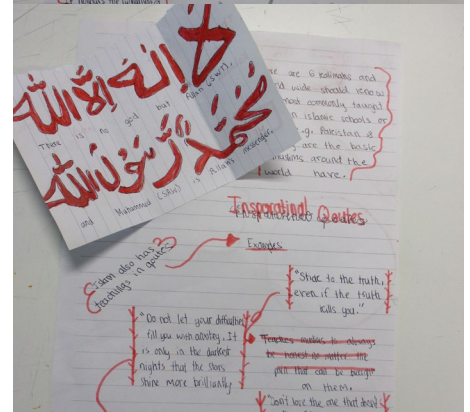 لا إله إلا الله
There is no god but Allah (SWT),
محمد رسول الله
and Muhammed (SAW) is Allahs messenger.
are 6 kalimahs and
wide should know
most commonly taught
islamic schools or
e.g. Pakistan &
are the basic
muslims around the
world have.
Insparational Qoutes
Examples
Islam also has
teachings in qoutes
"Stick to the truth,
even if the truth
kills you."
"Do not let your difficulties
fill you with anxiety. It
is only in the darkest
nights that the stars
shine more brilliantly
Teaches muslims to always
be honest no matter the
pain that could be brought
on them.
"Don't love the one that doesn't